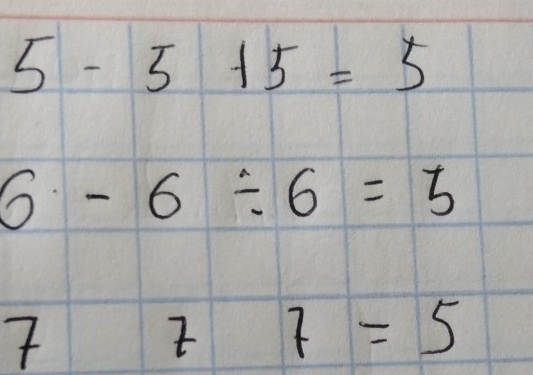 5 - 5 + 5 = 5
6 - 6 ÷ 6 = 5
7 7 7 = 5